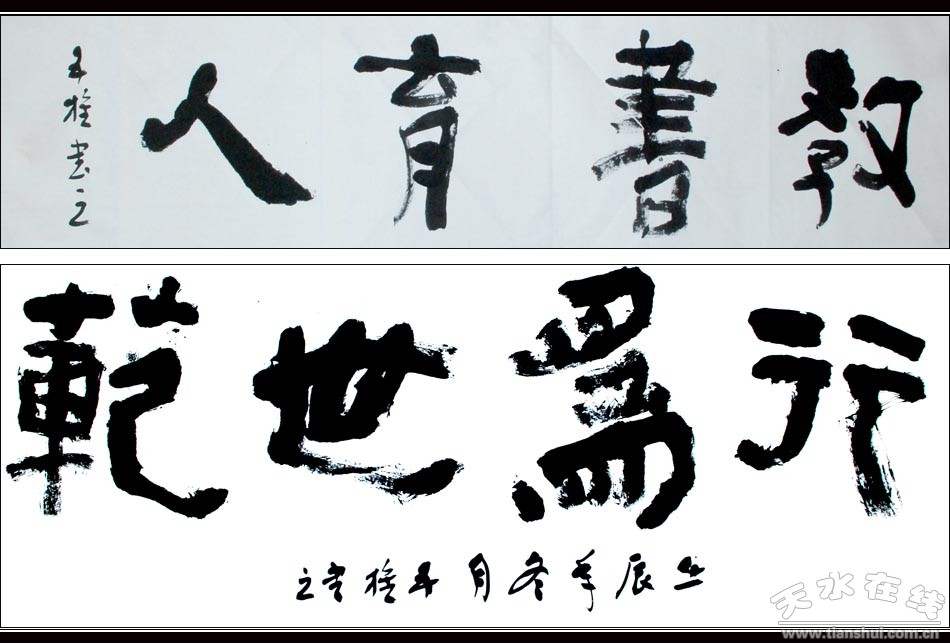 教書育人
書之
行爲世範
辰年冬月 書之
天水在线
www.tianshui.com.cn